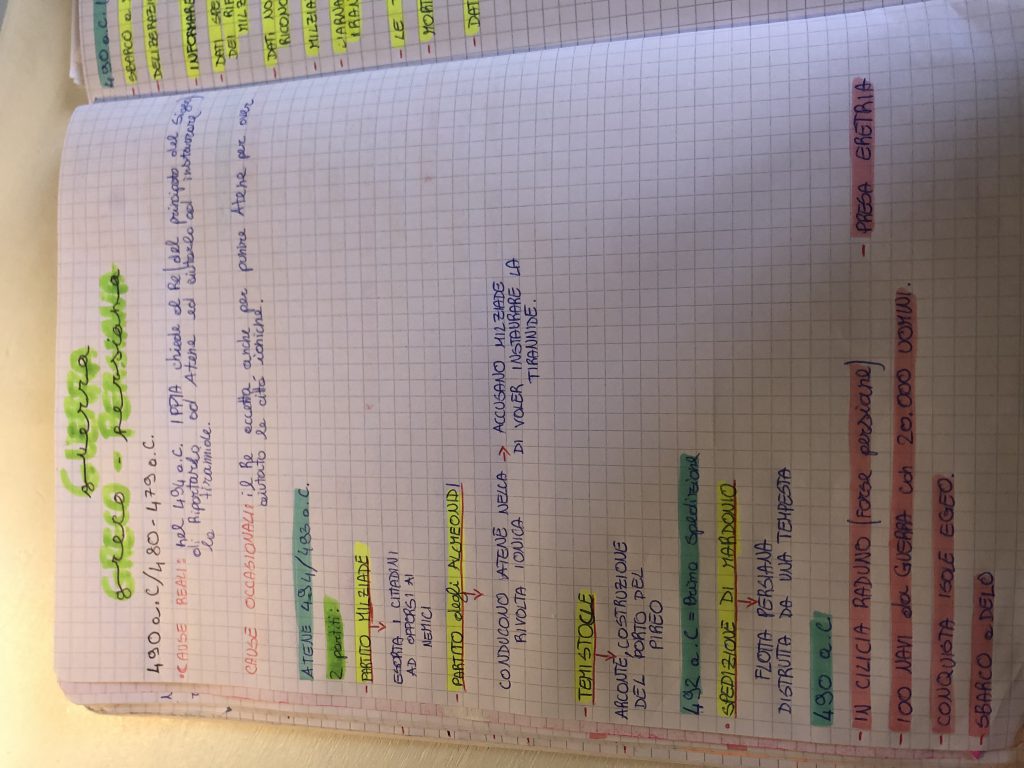 GUERRA
GRECO - PERSIANA
guerra
greco - persiana
490 a.C/480-479 a.C.
• CAUSE REALI: nel 494 a.C. IPPIA chiede al Re (del principato del
di Riportarlo ad Atene ed aiutarlo ad instaurare
la tirannide.
CAUSE OCCASIONALI: il Re accetta anche per punire Atene per aver
aiutato le città ioniche.
ATENE 494/493 a.C.
2 partiti:
- PARTITO MILZIADE
ESORTA I CITTADINI
AD OPPORSI AI
NEMICI
- PARTITO degli ALCMEONIDI
CONDUCONO ATENE NELLA → ACCUSANO MILZIADE
RIVOLTA IONICA DI VOLER INSTAURARE LA
TIRANNIDE.
- TEMISTOCLE
ARCONTE, COSTRUZIONE
DEL PORTO DEL
PIREO
492 a.C = Prima spedizione
• SPEDIZIONE DI MARDONIO
FLOTTA PERSIANA
DISTRUTTA DA UNA TEMPESTA
490 a.C.
- IN CILICIA RADUNO (Forze persiane) - PRESA ERETRIA
- 100 NAVI da GUERRA con 20.000 UOMINI.
- CONQUISTA ISOLE EGEO.
- SBARCO a DELO
490 a.C.
- SBARCO a
- INFORMARE
- DATI
DEL
- DATI NO
- MILZIA
- LE
- MORT
- DATI